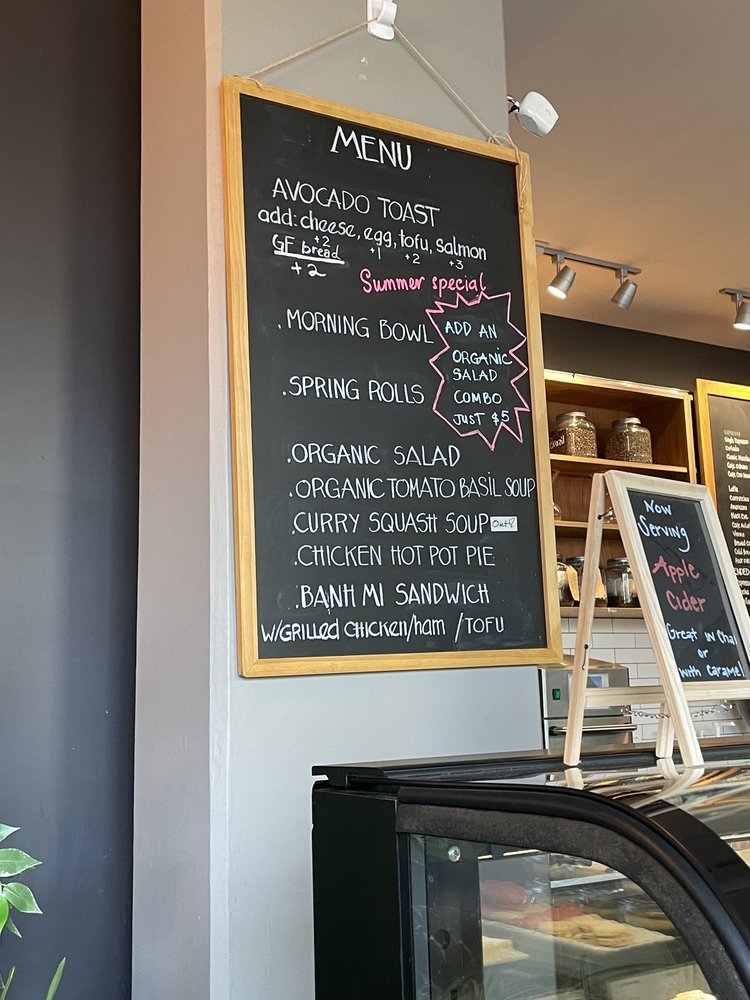 MENU
AVOCADO TOAST
add: cheese, egg, tofu, salmon
+2 +1 +2 +3
GF bread
+2
Summer special
. MORNING BOWL
ADD AN
ORGANIC
SALAD
COMBO
JUST $5
. SPRING ROLLS
. ORGANIC SALAD
. ORGANIC TOMATO BASIL SOUP
. CURRY SQUASH SOUP Out!
. CHICKEN HOT POT PIE
. BANH MI SANDWICH
W/GRILLED CHICKEN/ham /TOFU
Now
Serving
Apple
Cider
Great in Chai
or
with Caramel